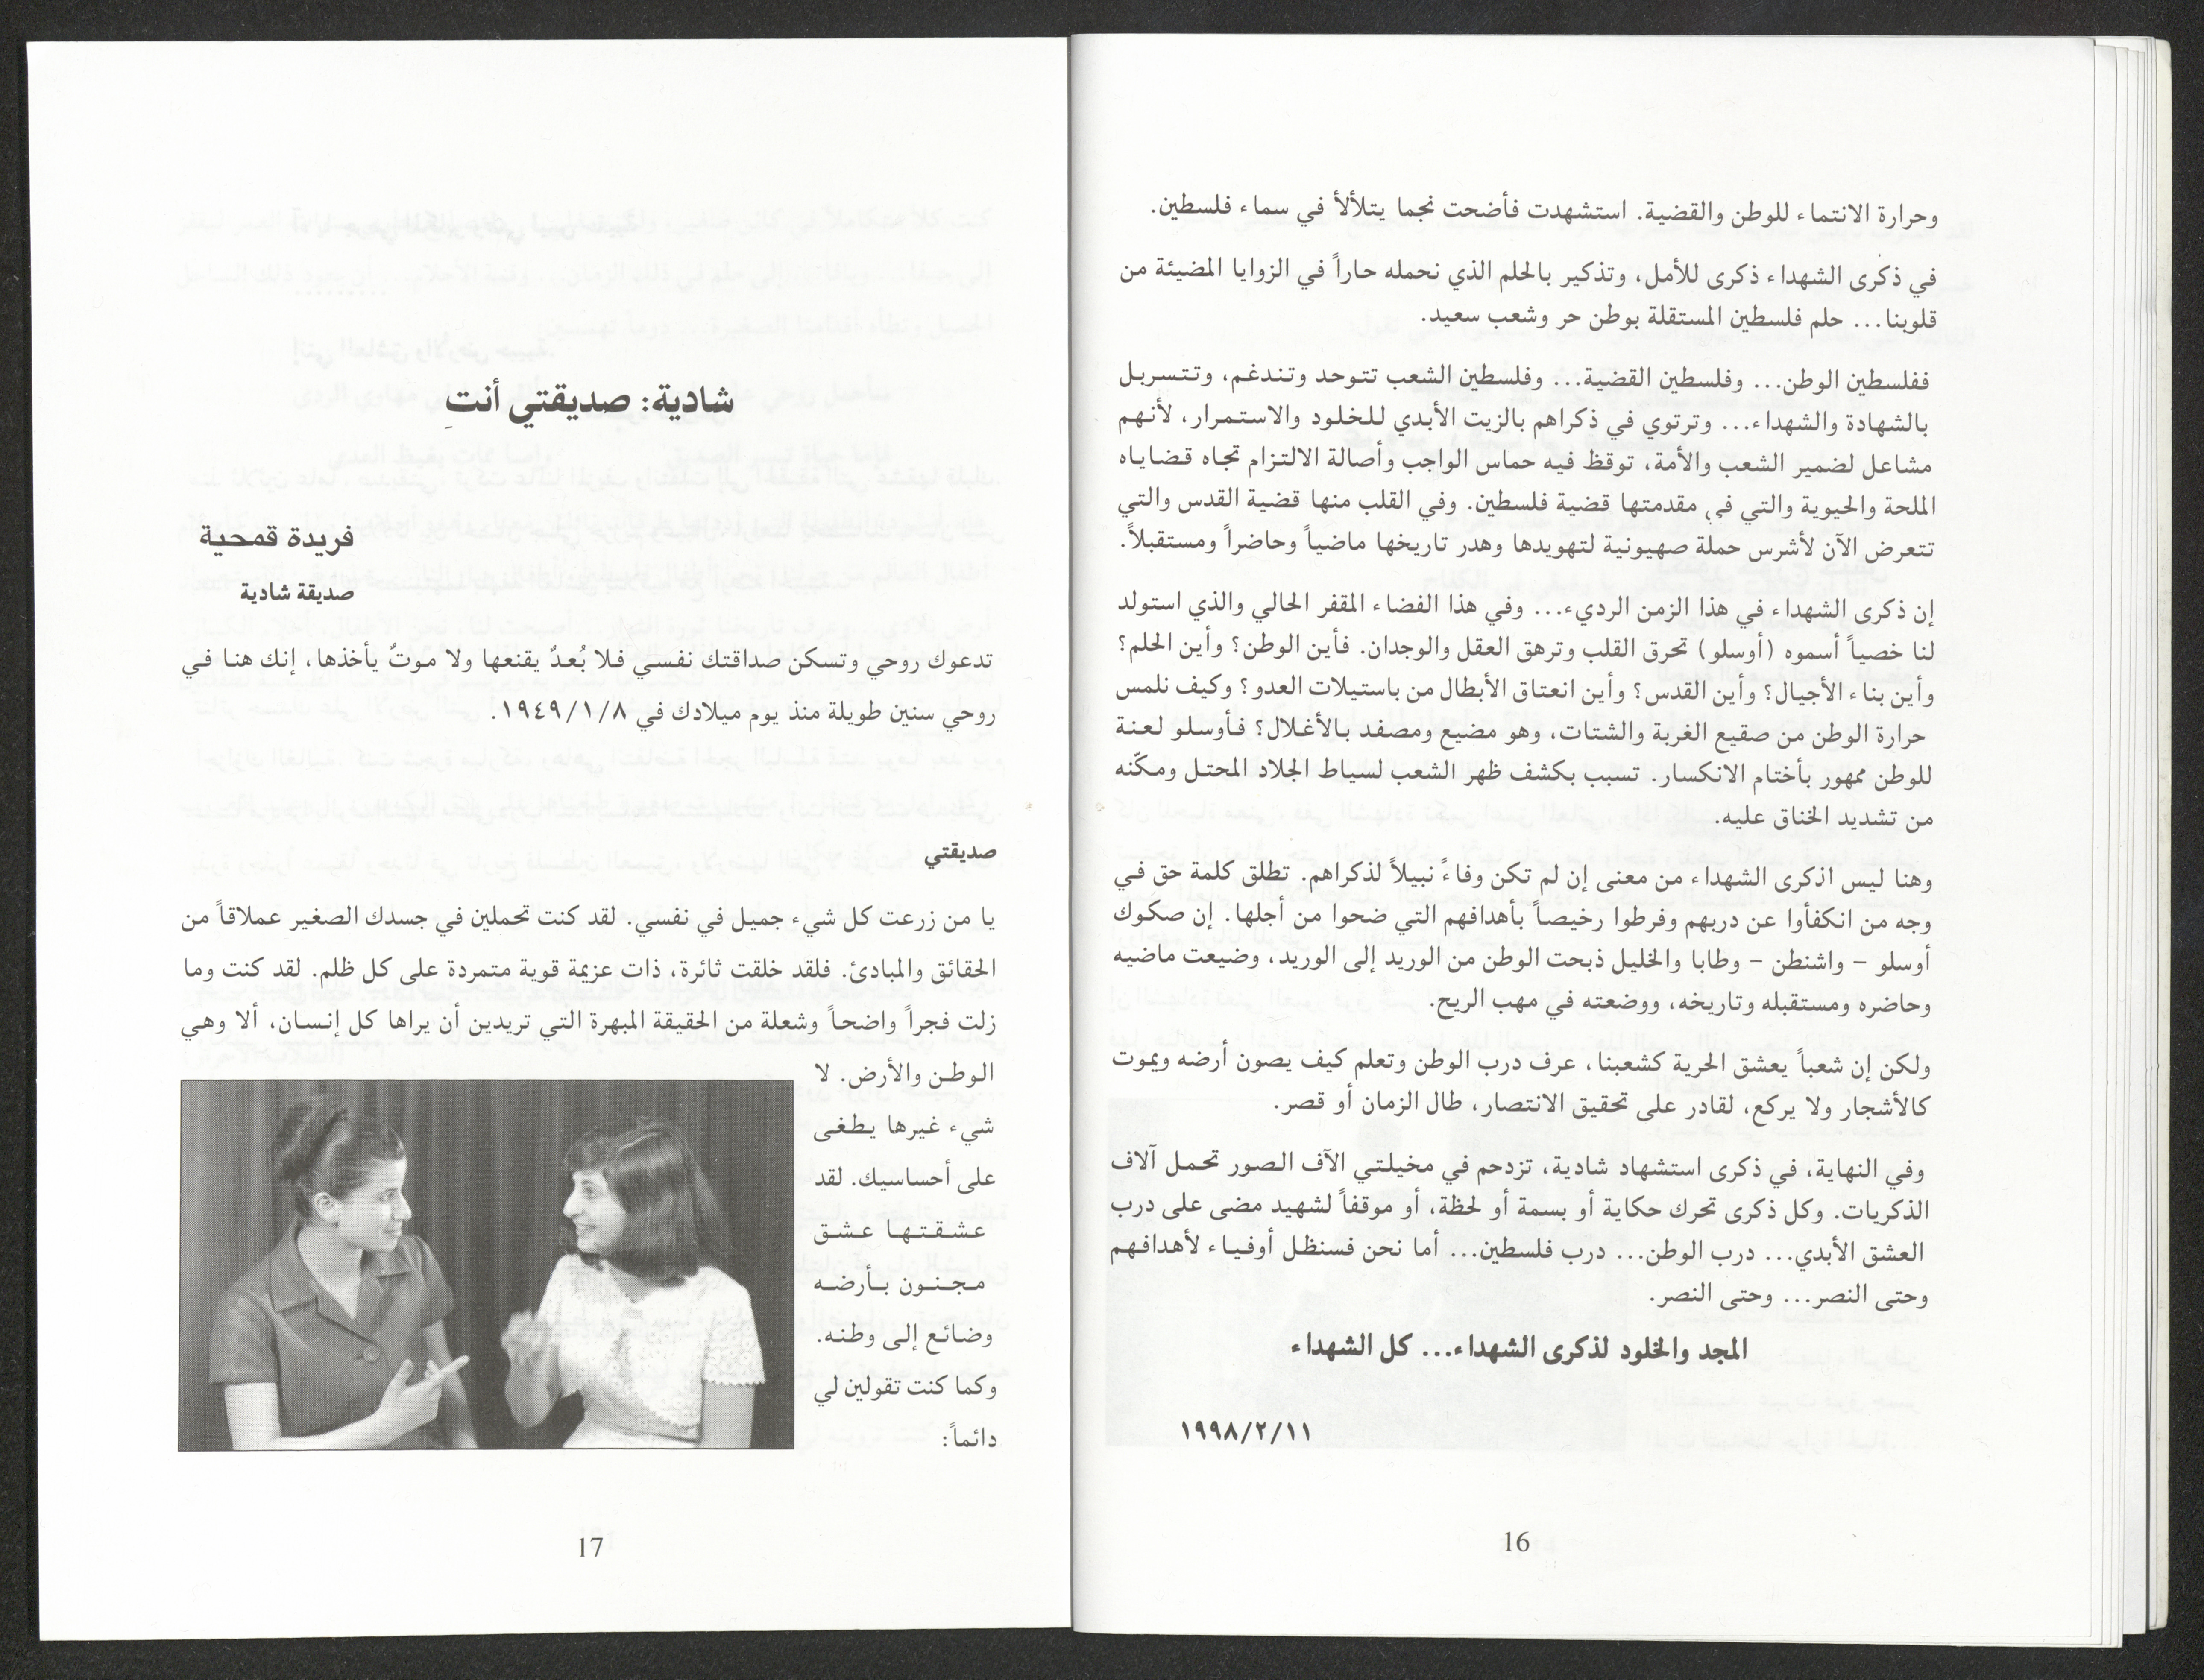 وحرارة الانتماء للوطن والقضية. استشهدت فأضحت نجما يتلألأ في سماء فلسطين.
في ذكرى الشهداء ذكرى للأمل، وتذكير بالحلم الذي نحمله حاراً في الزوايا المضيئة من
قلوبنا... حلم فلسطين المستقلة بوطن حر وشعب سعيد.
ففلسطين الوطن... وفلسطين القضية... وفلسطين الشعب تتوحد وتندغم، وتتسربل
بالشهادة والشهداء... وترتوي في ذكراهم بالزيت الأبدي للخلود والاستمرار، لأنهم
مشاعل لضمير الشعب والأمة، توقظ فيه حماس الواجب وأصالة الالتزام تجاه قضاياه
الملحة والحيوية والتي في مقدمتها قضية فلسطين. وفي القلب منها قضية القدس والتي
تتعرض الآن لأشرس حملة صهيونية لتهويدها وهدر تاريخها ماضياً وحاضراً ومستقبلاً.
إن ذكرى الشهداء في هذا الزمن الرديء... وفي هذا الفضاء المقفر الحالي والذي استولد
لنا خصياً أسموه (أوسلو) تحرق القلب وترهق العقل والوجدان. فأين الوطن؟ وأين الحلم؟
وأين بناء الأجيال؟ وأين القدس؟ وأين انعتاق الأبطال من باستيلات العدو؟ وكيف نلمس
حرارة الوطن من صقيع الغربة والشتات، وهو مضيع ومصفد بالأغلال؟ فأوسلو لعنة
للوطن ممهور بأختام الانكسار. تسبب بكشف ظهر الشعب لسياط الجلاد المحتل ومكّنه
من تشديد الخناق عليه.
وهنا ليس اذكرى الشهداء من معنى إن لم تكن وفاءً نبيلاً لذكراهم. تطلق كلمة حق في
وجه من انكفأوا عن دربهم وفرطوا رخيصاً بأهدافهم التي ضحوا من أجلها. إن صكوك
أوسلو - واشنطن - وطابا والخليل ذبحت الوطن من الوريد إلى الوريد، وضيعت ماضيه
وحاضره ومستقبله وتاريخه، ووضعته في مهب الريح.
ولكن إن شعباً يعشق الحرية كشعبنا، عرف درب الوطن وتعلم كيف يصون أرضه ويموت
كالأشجار ولا يركع، لقادر على تحقيق الانتصار، طال الزمان أو قصر.
وفي النهاية، في ذكرى استشهاد شادية، تزدحم في مخيلتي الآف الصور تحمل آلاف
الذكريات. وكل ذكرى تحرك حكاية أو بسمة أو لحظة، أو موقفاً لشهيد مضى على درب
العشق الأبدي... درب الوطن... درب فلسطين... أما نحن فسنظل أوفياء لأهدافهم
وحتى النصر... وحتى النصر.
المجد والخلود لذكرى الشهداء... كل الشهداء
١٩٩٨/٢/١١
16
شادية: صديقتي أنتِ
فريدة قمحية
صديقة شادية
تدعوك روحي وتسكن صداقتك نفسي فلا بُعدٌ يقنعها ولا موتٌ يأخذها، إنك هنا في
روحي سنين طويلة منذ يوم ميلادك في ١٩٤٩/١/٨.
صديقتي
يا من زرعت كل شيء جميل في نفسي. لقد كنت تحملين في جسدك الصغير عملاقاً من
الحقائق والمبادئ. فلقد خلقت ثائرة، ذات عزيمة قوية متمردة على كل ظلم. لقد كنت وما
زلت فجراً واضحاً وشعلة من الحقيقة المبهرة التي تريدين أن يراها كل إنسان، ألا وهي
الوطن والأرض. لا
شيء غيرها يطغى
على أحساسيك. لقد
عشقتها عشق
مجنون بأرضه
وضائع إلى وطنه.
وكما كنت تقولين لي
دائماً:
17